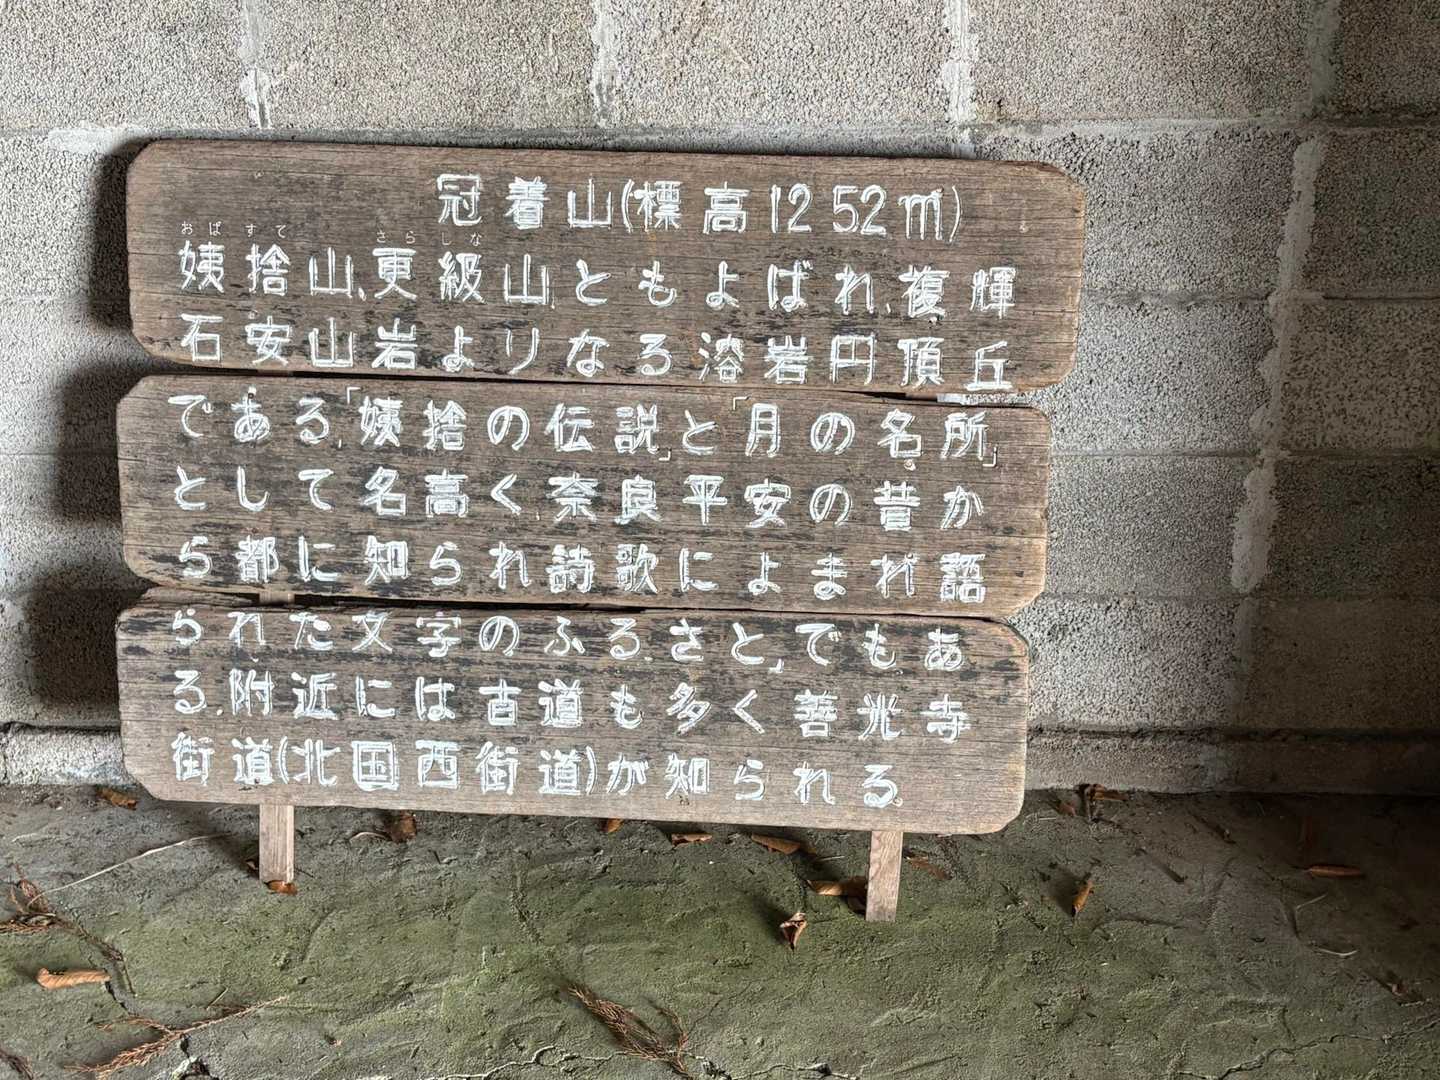 冠着山(標高1252m)
おばすて さらしな
姨捨山、更級山ともよばれ、複輝
石安山岩よりなる溶岩円頂丘
である。「姨捨の伝説」と「月の名所」
として名高く、奈良平安の昔か
ら都に知られ詩歌によまれ語
られた文字のふるさと、でもあ
る。附近には古道も多く善光寺
街道(北国西街道)が知られる。